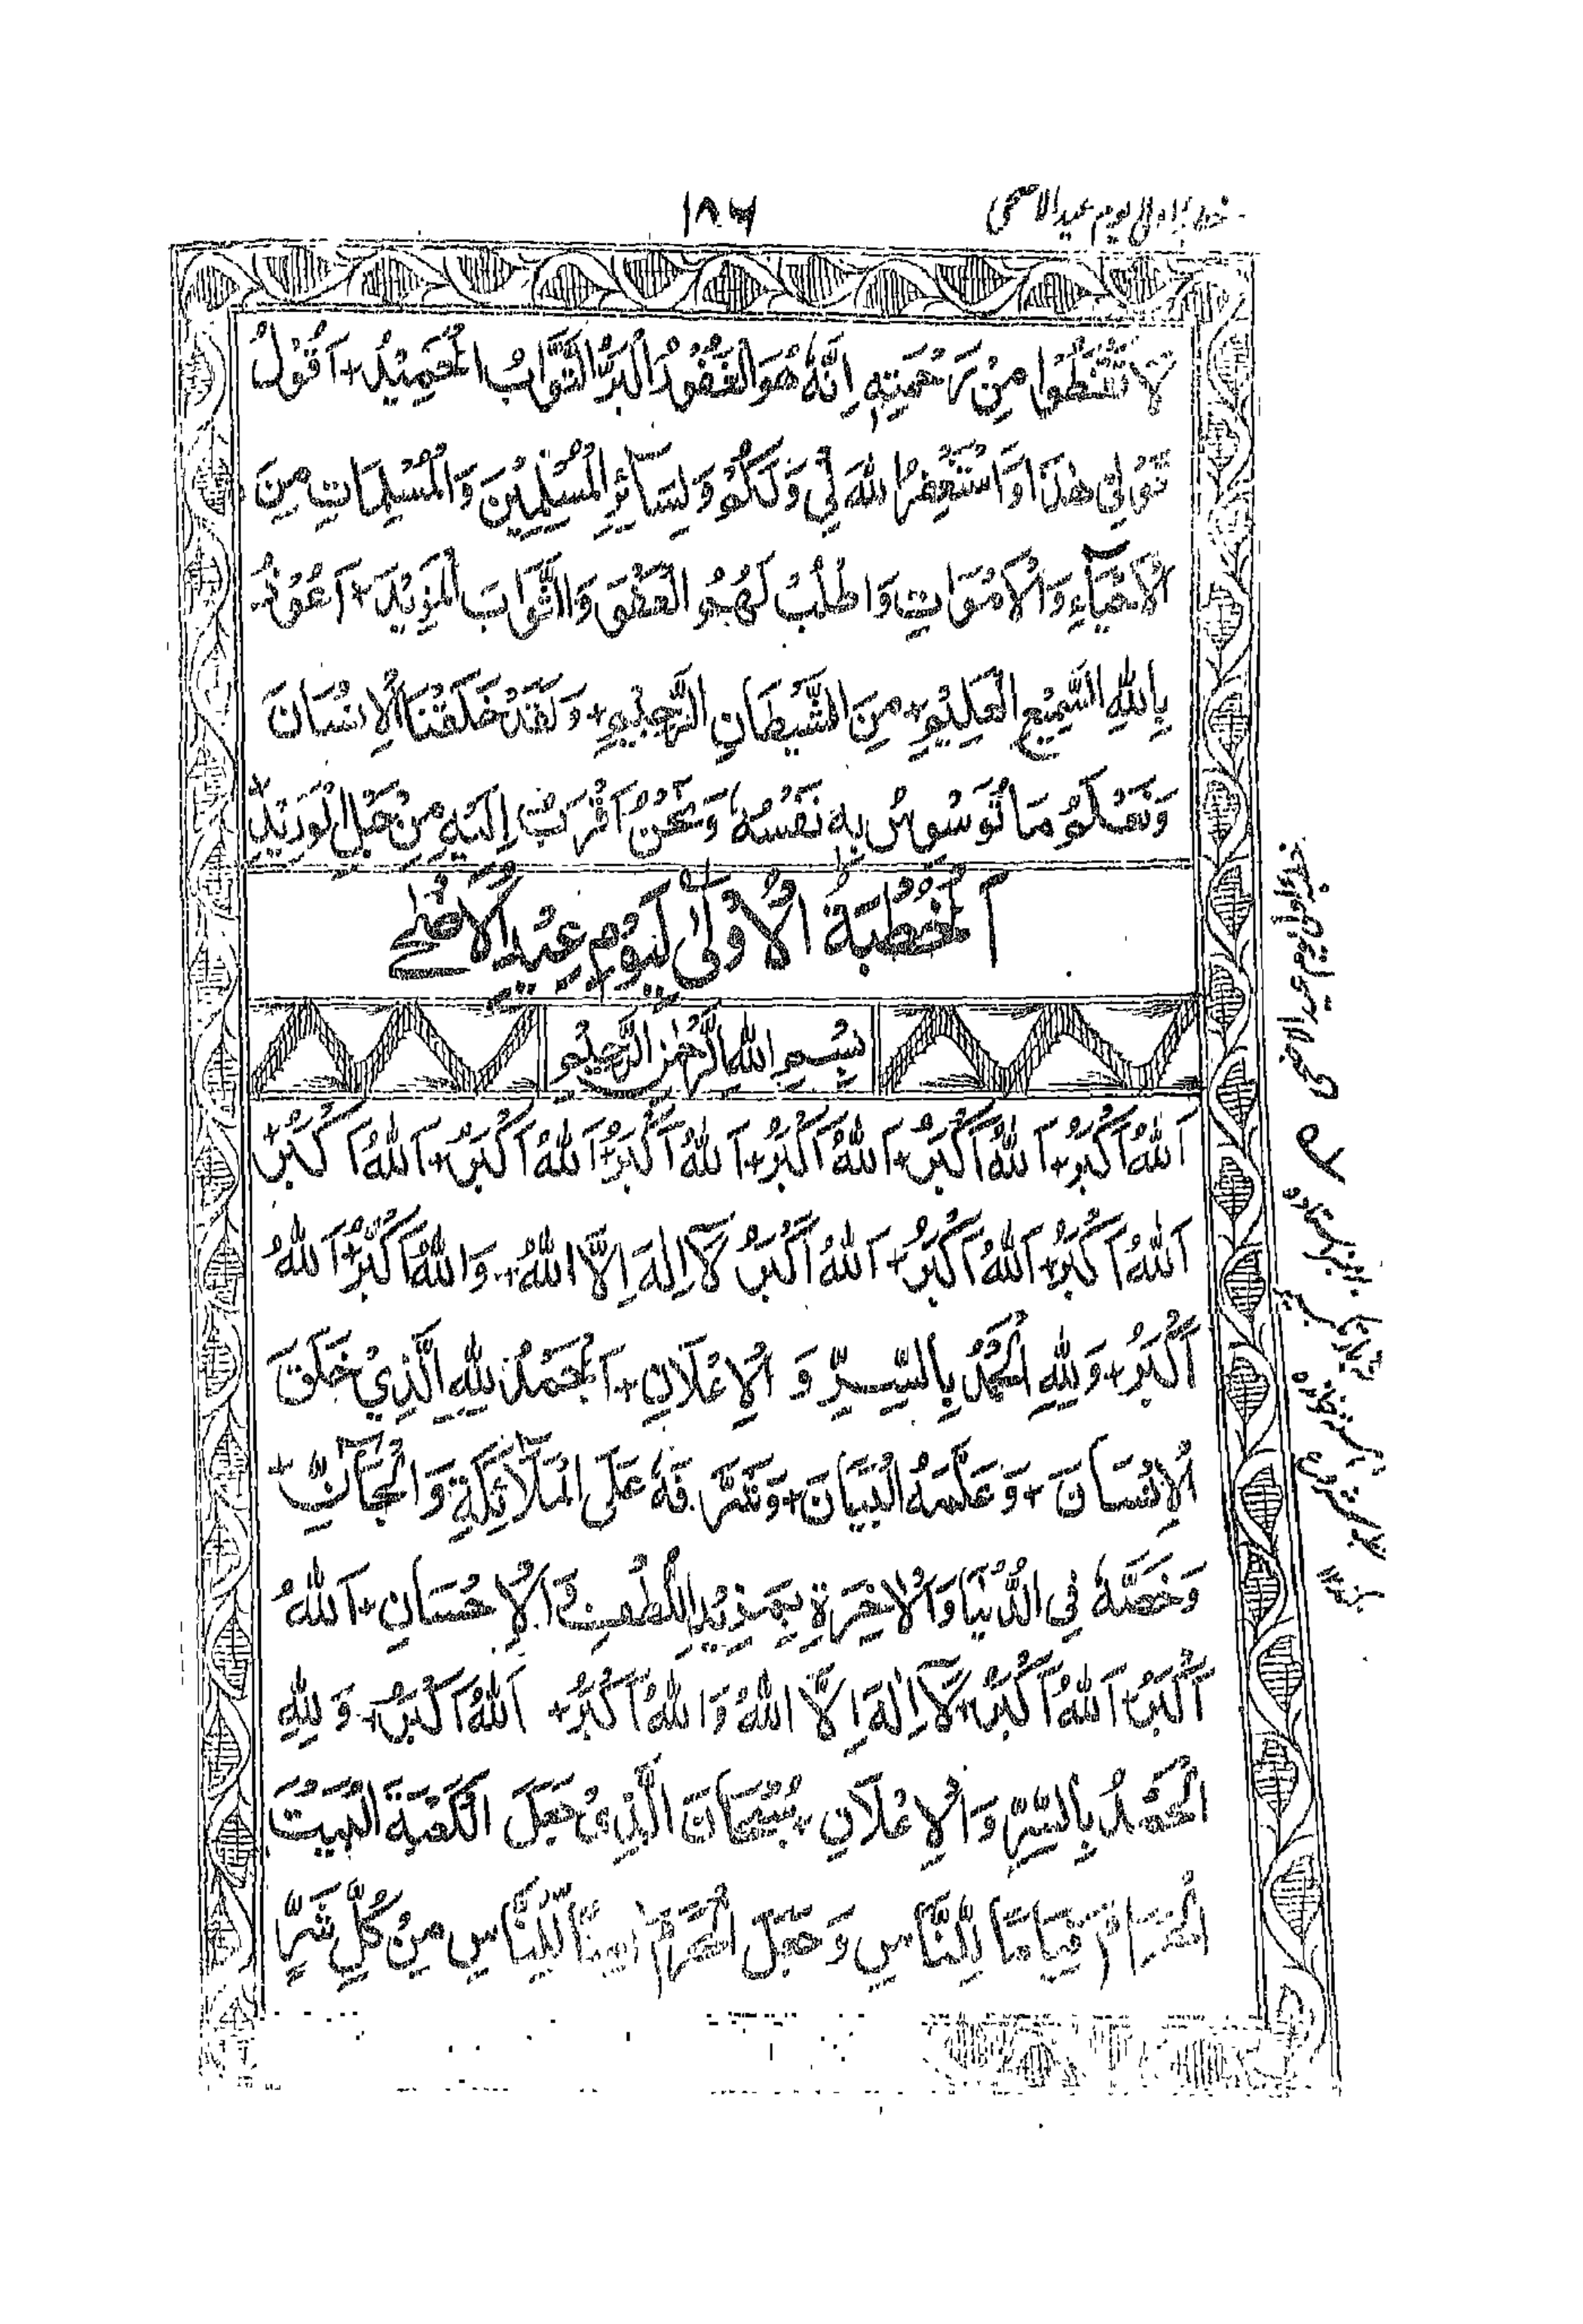 خطبۂ اولی یوم عید الاضحی
۱۸۶
لَا تَقْنَطُوْا مِنْ رَحْمَتِهٖ اِنَّهٗ هُوَ الْغَفُوْرُ الْبَرُّ التَّوَّابُ الْحَمِيْدُ + اَقُوْلُ
قَوْلِيْ هٰذَا وَاَسْتَغْفِرُ اللّٰهَ لِيْ وَلَكُمْ وَلِسَآئِرِ الْمُسْلِمِيْنَ وَالْمُسْلِمَاتِ مِنَ
الْاَحْيَآءِ وَالْاَمْوَاتِ وَاَطْلُبُ لَهُمُ الْعَفْوَ وَالثَّوَابَ الْمَزِيْدَ + اَعُوْذُ
بِاللّٰهِ السَّمِيْعِ الْعَلِيْمِ + مِنَ الشَّيْطَانِ الرَّجِيْمِ + وَلَقَدْ خَلَقْنَا الْاِنْسَانَ
وَنَعْلَمُ مَا تُوَسْوِسُ بِهٖ نَفْسُهٗ وَنَحْنُ اَقْرَبُ اِلَيْهِ مِنْ حَبْلِ الْوَرِيْدِ +
اَلْخُطْبَةُ الْاُوْلٰى لِيَوْمِ عِيْدِ الْاَضْحٰے
بِسْمِ اللّٰهِ الرَّحْمٰنِ الرَّحِيْمِ
اَللّٰهُ اَكْبَرُ + اَللّٰهُ اَكْبَرُ + اَللّٰهُ اَكْبَرُ + اَللّٰهُ اَكْبَرُ + اَللّٰهُ اَكْبَرُ + اَللّٰهُ اَكْبَرُ +
اَللّٰهُ اَكْبَرُ + اَللّٰهُ اَكْبَرُ + اَللّٰهُ اَكْبَرُ لَآ اِلٰهَ اِلَّا اللّٰهُ + وَاللّٰهُ اَكْبَرُ + اَللّٰهُ
اَكْبَرُ + وَلِلّٰهِ الْحَمْدُ بِالسِّرِّ وَ الْاِعْلَانِ + اَلْحَمْدُ لِلّٰهِ الَّذِيْ خَلَقَ
الْاِنْسَانَ + وَعَلَّمَهُ الْبَيَانَ + وَشَرَّفَهٗ عَلَى الْمَلَآئِكَةِ وَالْجَآنِّ +
وَخَصَّهٗ فِي الدُّنْيَا وَالْاٰخِرَةِ بِمَزِيْدِ اللُّطْفِ وَالْاِحْسَانِ + اَللّٰهُ
اَكْبَرُ اَللّٰهُ اَكْبَرُ + لَآ اِلٰهَ اِلَّا اللّٰهُ وَاللّٰهُ اَكْبَرُ + اَللّٰهُ اَكْبَرُ + وَلِلّٰهِ
الْحَمْدُ بِالسِّرِّ وَالْاِعْلَانِ + سُبْحَانَ الَّذِيْ جَعَلَ الْكَعْبَةَ الْبَيْتَ
الْحَرَامَ قِيَامًا لِلنَّاسِ وَجَعَلَ الْحَرَمَ اَمْنًا لِلنَّاسِ مِنْ كُلِّ شَرٍّ
خطبۂ اولی یوم عید الاضحی